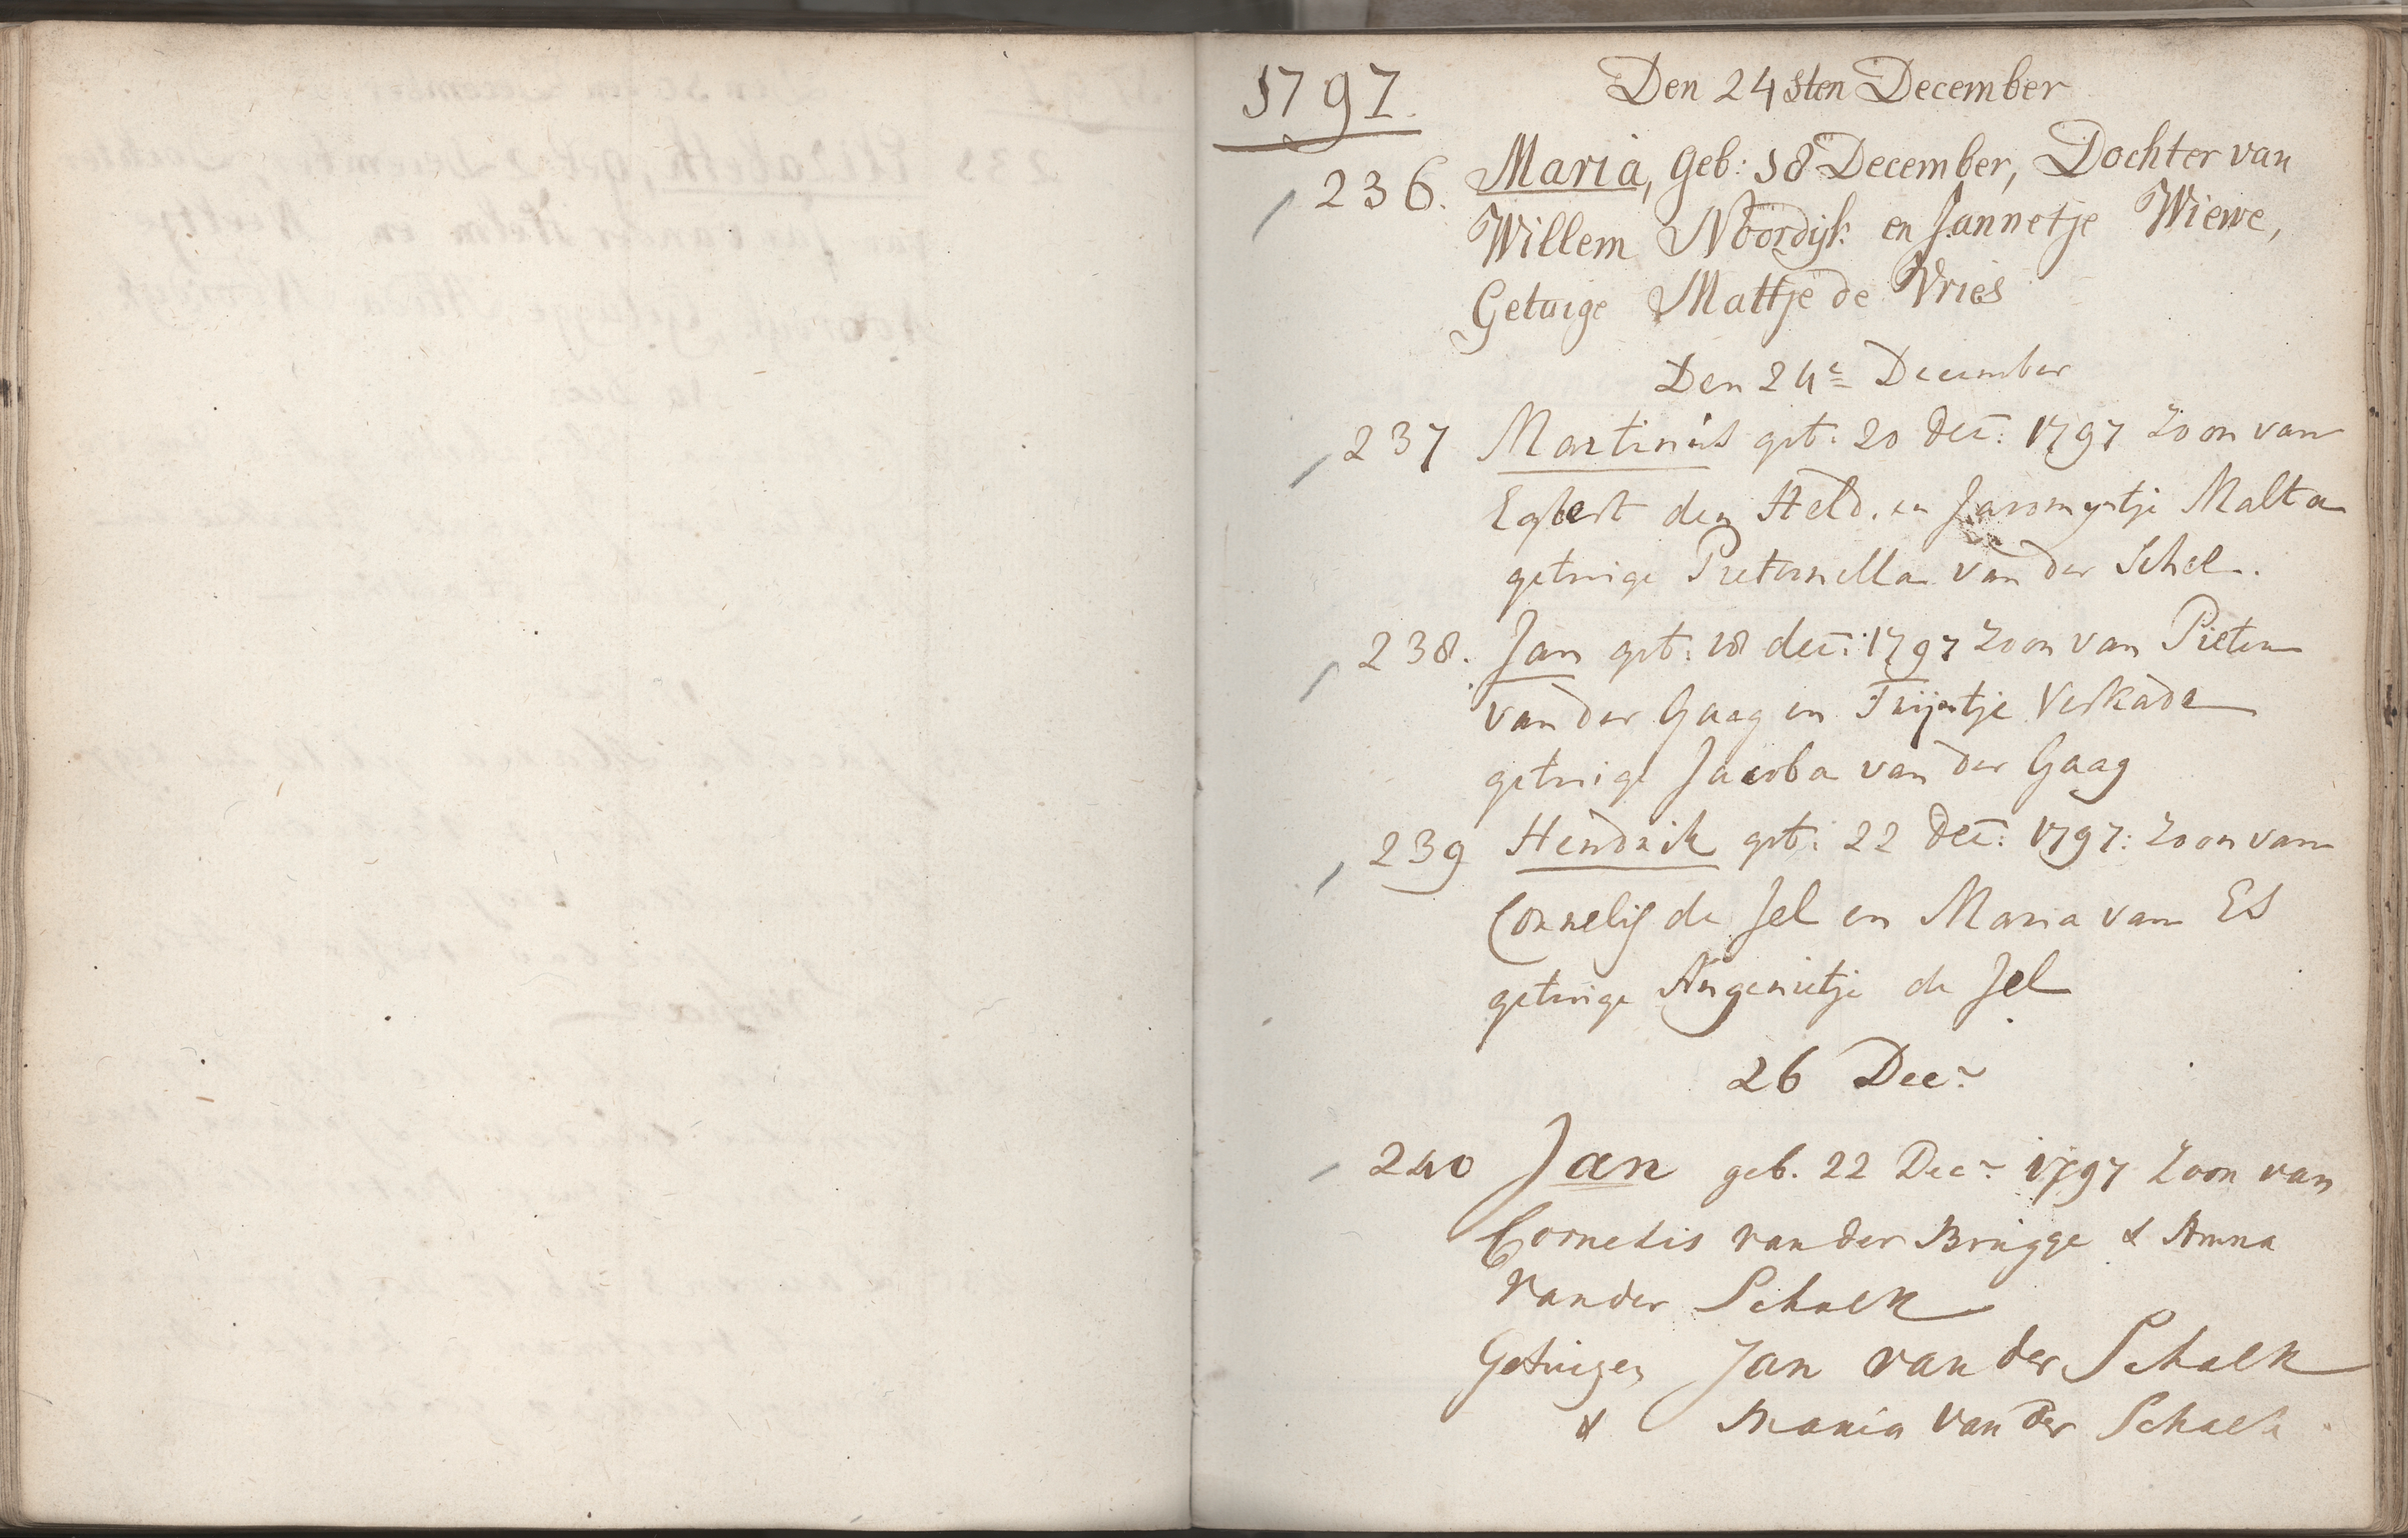 1797.
Den 24sten December
236. Maria, Geb: 18 December, Dochter van
Willem Noordijk en Jannetje Wiewe,
Getuige Mattje de Vries
Den 24e December
237 Martinus geb: 20 dec: 1797 Zoon van
Egbert den Held. en Jannetje Malta
getuige Pieternella van der Schel.
238. Jan geb: 18 dec: 1797 Zoon van Pieter
van der Gaag en Trijntje Verkade
getuige Jacoba van der Gaag
239 Hendrik geb: 22 dec: 1797: Zoon van
Cornelis de Jel en Maria van Es
getuige Angenietje de Jel
26 Decr
240 Jan geb. 22 Decr 1797 Zoon van
Cornelis van der Brugge & Anna
van der Schalk
Getuigen Jan van der Schalk
& Maria van der Schalk.